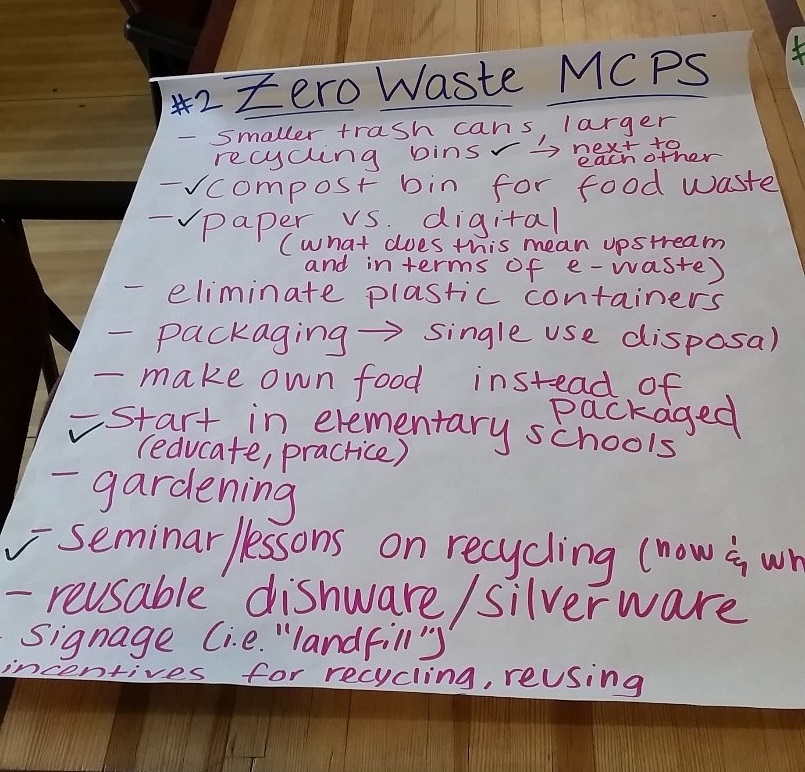 #2 Zero Waste MCPS
- smaller trash cans, larger
recycling bins ✓ → next to
each other
- ✓ compost bin for food waste
- ✓ paper vs. digital
(what does this mean upstream
and in terms of e-waste)
- eliminate plastic containers
- packaging → single use disposal
- make own food instead of
packaged
- ✓ Start in elementary schools
(educate, practice)
- gardening
- ✓ seminar/lessons on recycling (how & wh
- reusable dishware/silverware
- signage (i.e. "landfill")
incentives for recycling, reusing
#